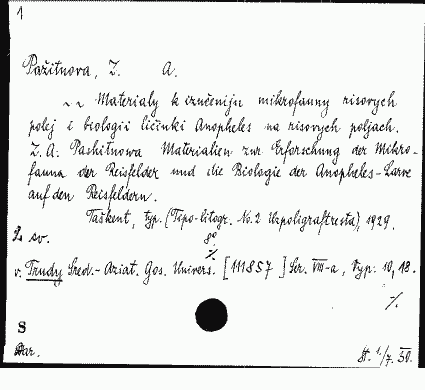 1
Pažitnova, Z. A.
~ ~ Materialy k izučeniju mikrofauny risovych
polej i biologii ličinki Anopheles na risovych poljach.
Z. A. Pashitnowa Materialien zur Erforschung der Mikro-
fauna der Reisfelder und die Biologie der Anopheles-Larve
auf den Reisfeldern.
Taškent, typ. (Tipo-litogr. No. 2 Uzpoligraftresta), 1929.
2 sv. 8°.
%
v. Trudy Sred.-Aziat. Gos. Univers. [111857] Ser. VIII-a, Vyp. 10, 18.
%
S
Dar. St. 1./7. 50.